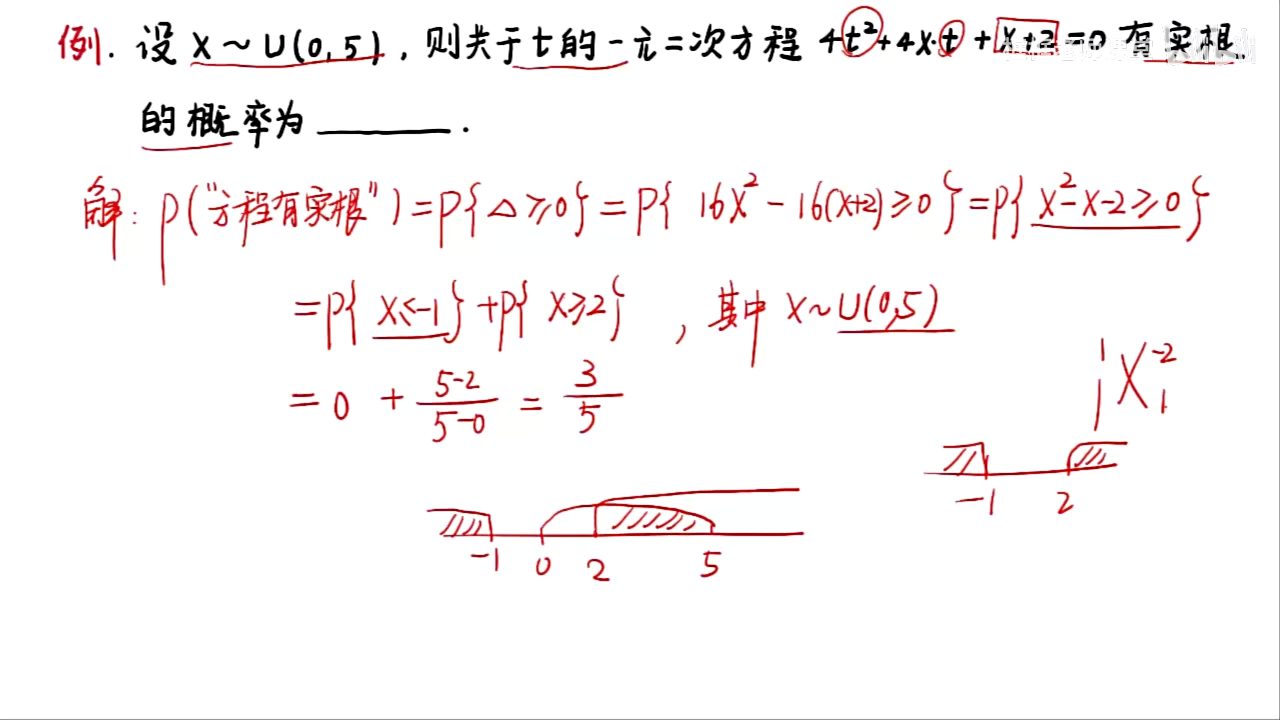 例. 设 X ~ U(0,5), 则关于 t 的一元二次方程 4t²+4x·t+x+2=0 有实根
的概率为 ______ .
解: P("方程有实根")=P{△≥0}=P{16X²-16(X+2)≥0}=P{X²-X-2≥0}
=P{X≤-1}+P{X≥2}, 其中 X~U(0,5)
= 0 + (5-2)/(5-0) = 3/5
1 -2
1 1
-1 2
-1 0 2 5